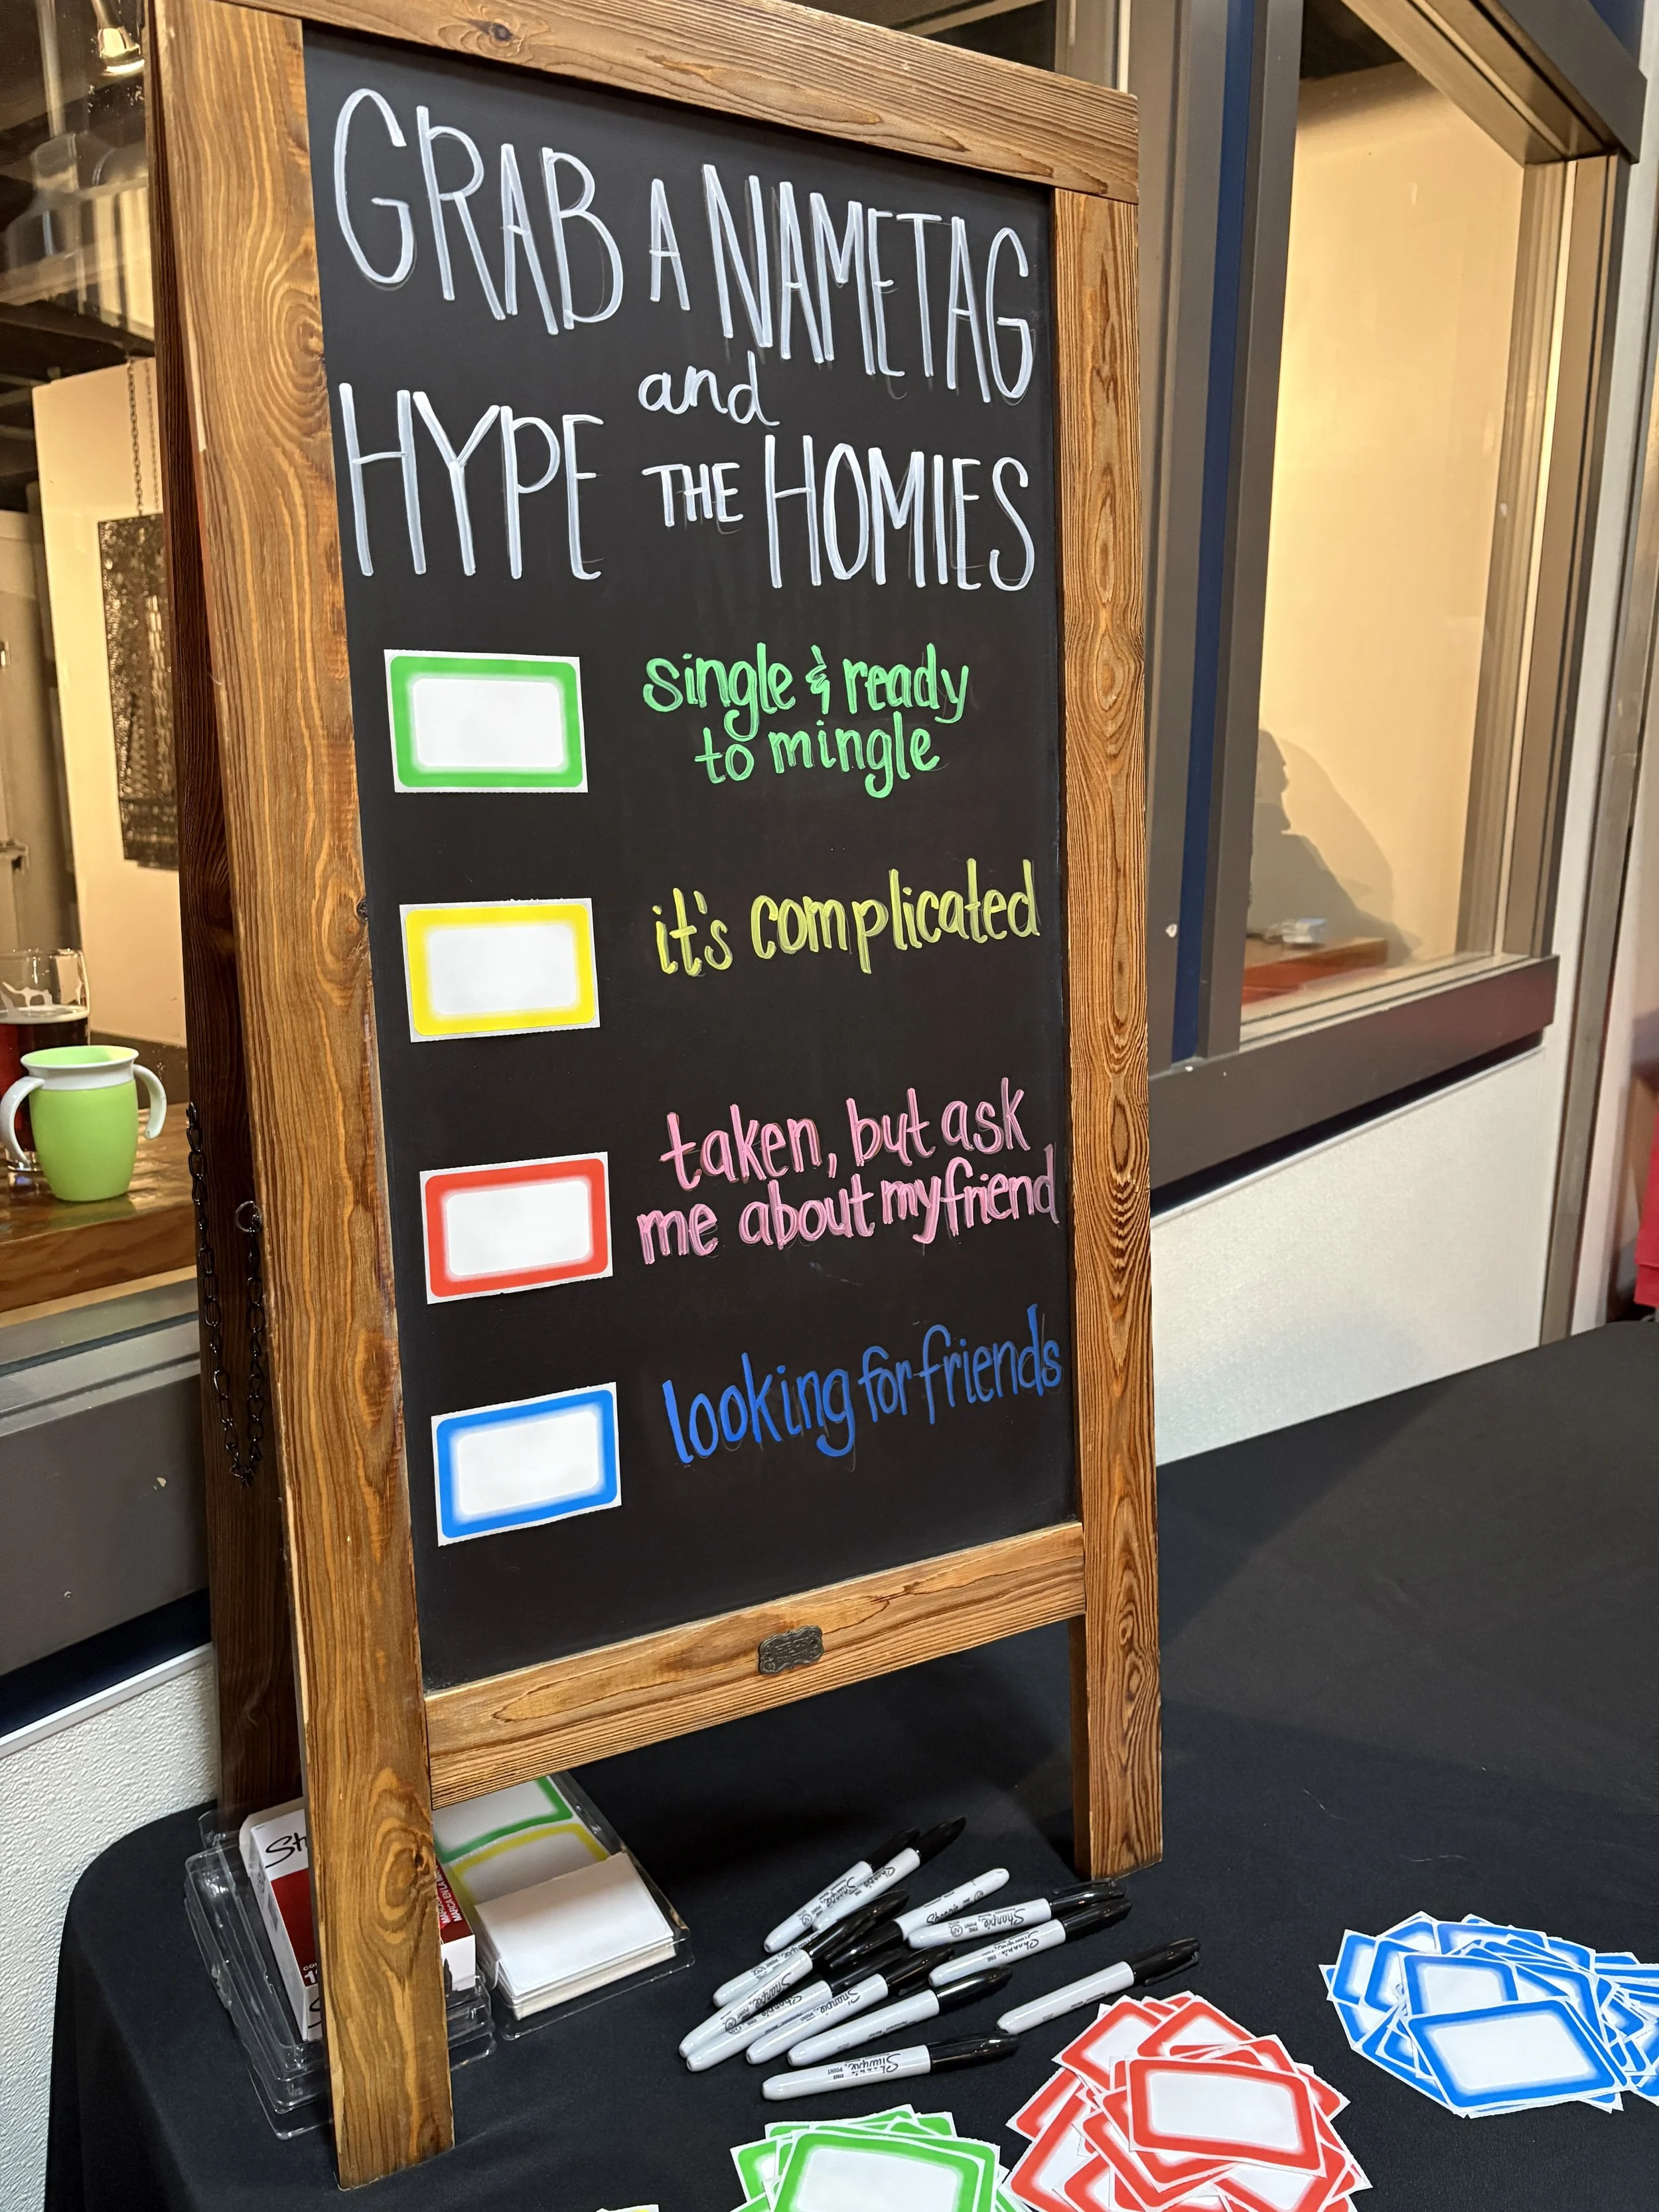 GRAB A NAMETAG
and
HYPE THE HOMIES
single & ready
to mingle
it's complicated
taken, but ask
me about my friend
looking for friends
Sharpie
Sharpie
Sharpie
Sharpie